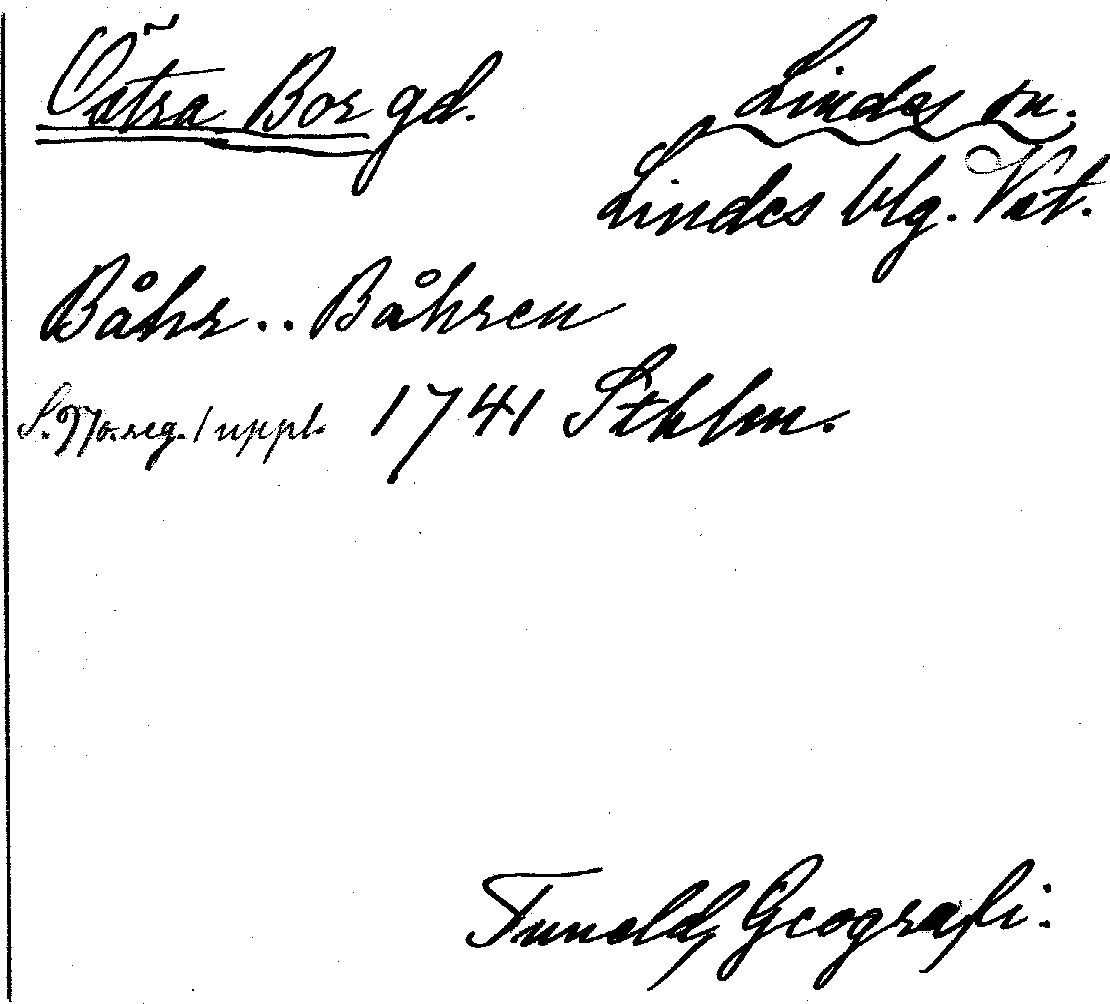 Östra Bor gd.
Lindes sn.
Lindes blg. Vst.
Båhr.. Båhren
1741 Sthlm.
Tunelds Geografi.